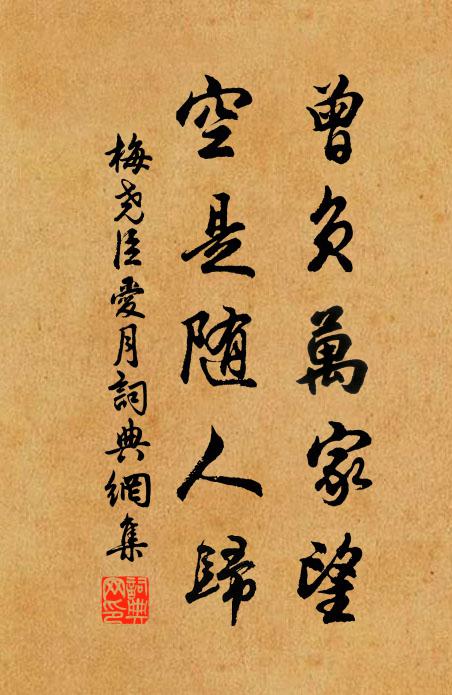 曾負萬家望
空是随人歸
梅尧臣愛月詞典網集
詞典
网印